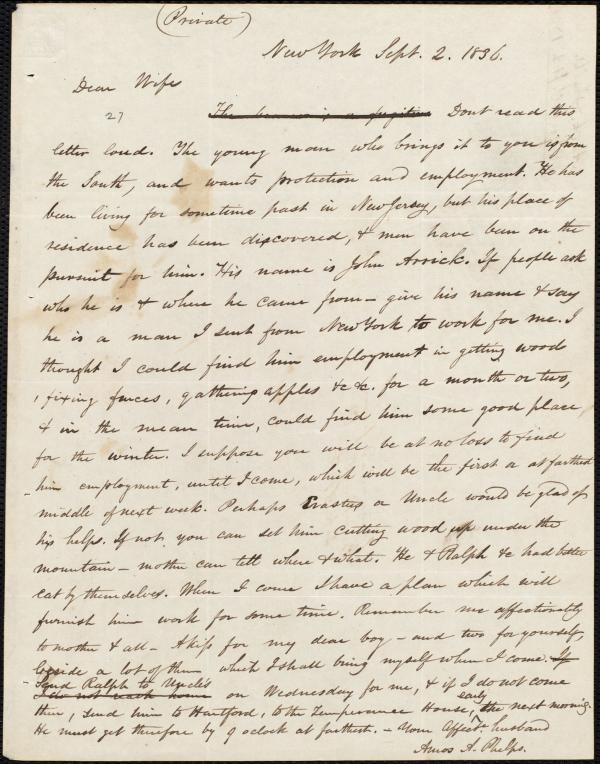 (Private)
New York Sept. 2. 1836.
Dear Wife
27
The bearer is a fugitive Dont read this
letter loud. The young man who brings it to you is from
the South, and wants protection and employment. He has
been living for sometime past in New Jersey, but his place of
residence has been discovered, & men have been on the
pursuit for him. His name is John Arrick. If people ask
who he is & where he came from – give his name & say
he is a man I sent from New York to work for me. I
thought I could find him employment in getting wood
, fixing fences, gathering apples &c &c. for a month or two,
& in the mean time, could find him some good place
for the winter. I suppose you will be at no loss to find
him employment, until I come, which will be the first or at farthest
middle of next week. Perhaps Erastus or Uncle would be glad of
his helps. If not, you can set him cutting wood up under the
mountain – mother can tell where & what. He & Ralph &c had better
eat by themselves. When I come I have a plan which will
furnish him work for some time. Remember me affectionately
to mother & all – A kiss for my dear boy – and two for yourself,
beside a lot of them which I shall bring myself when I come. If
Send Ralph to Uncle's
I do not reach home on Wednesday for me, & if I do not come
then, send him to Hartford, to the Temperance House, early the next morning.
He must get therefore by 9 oclock at farthest. – Your Affect. husband
Amos A. Phelps.